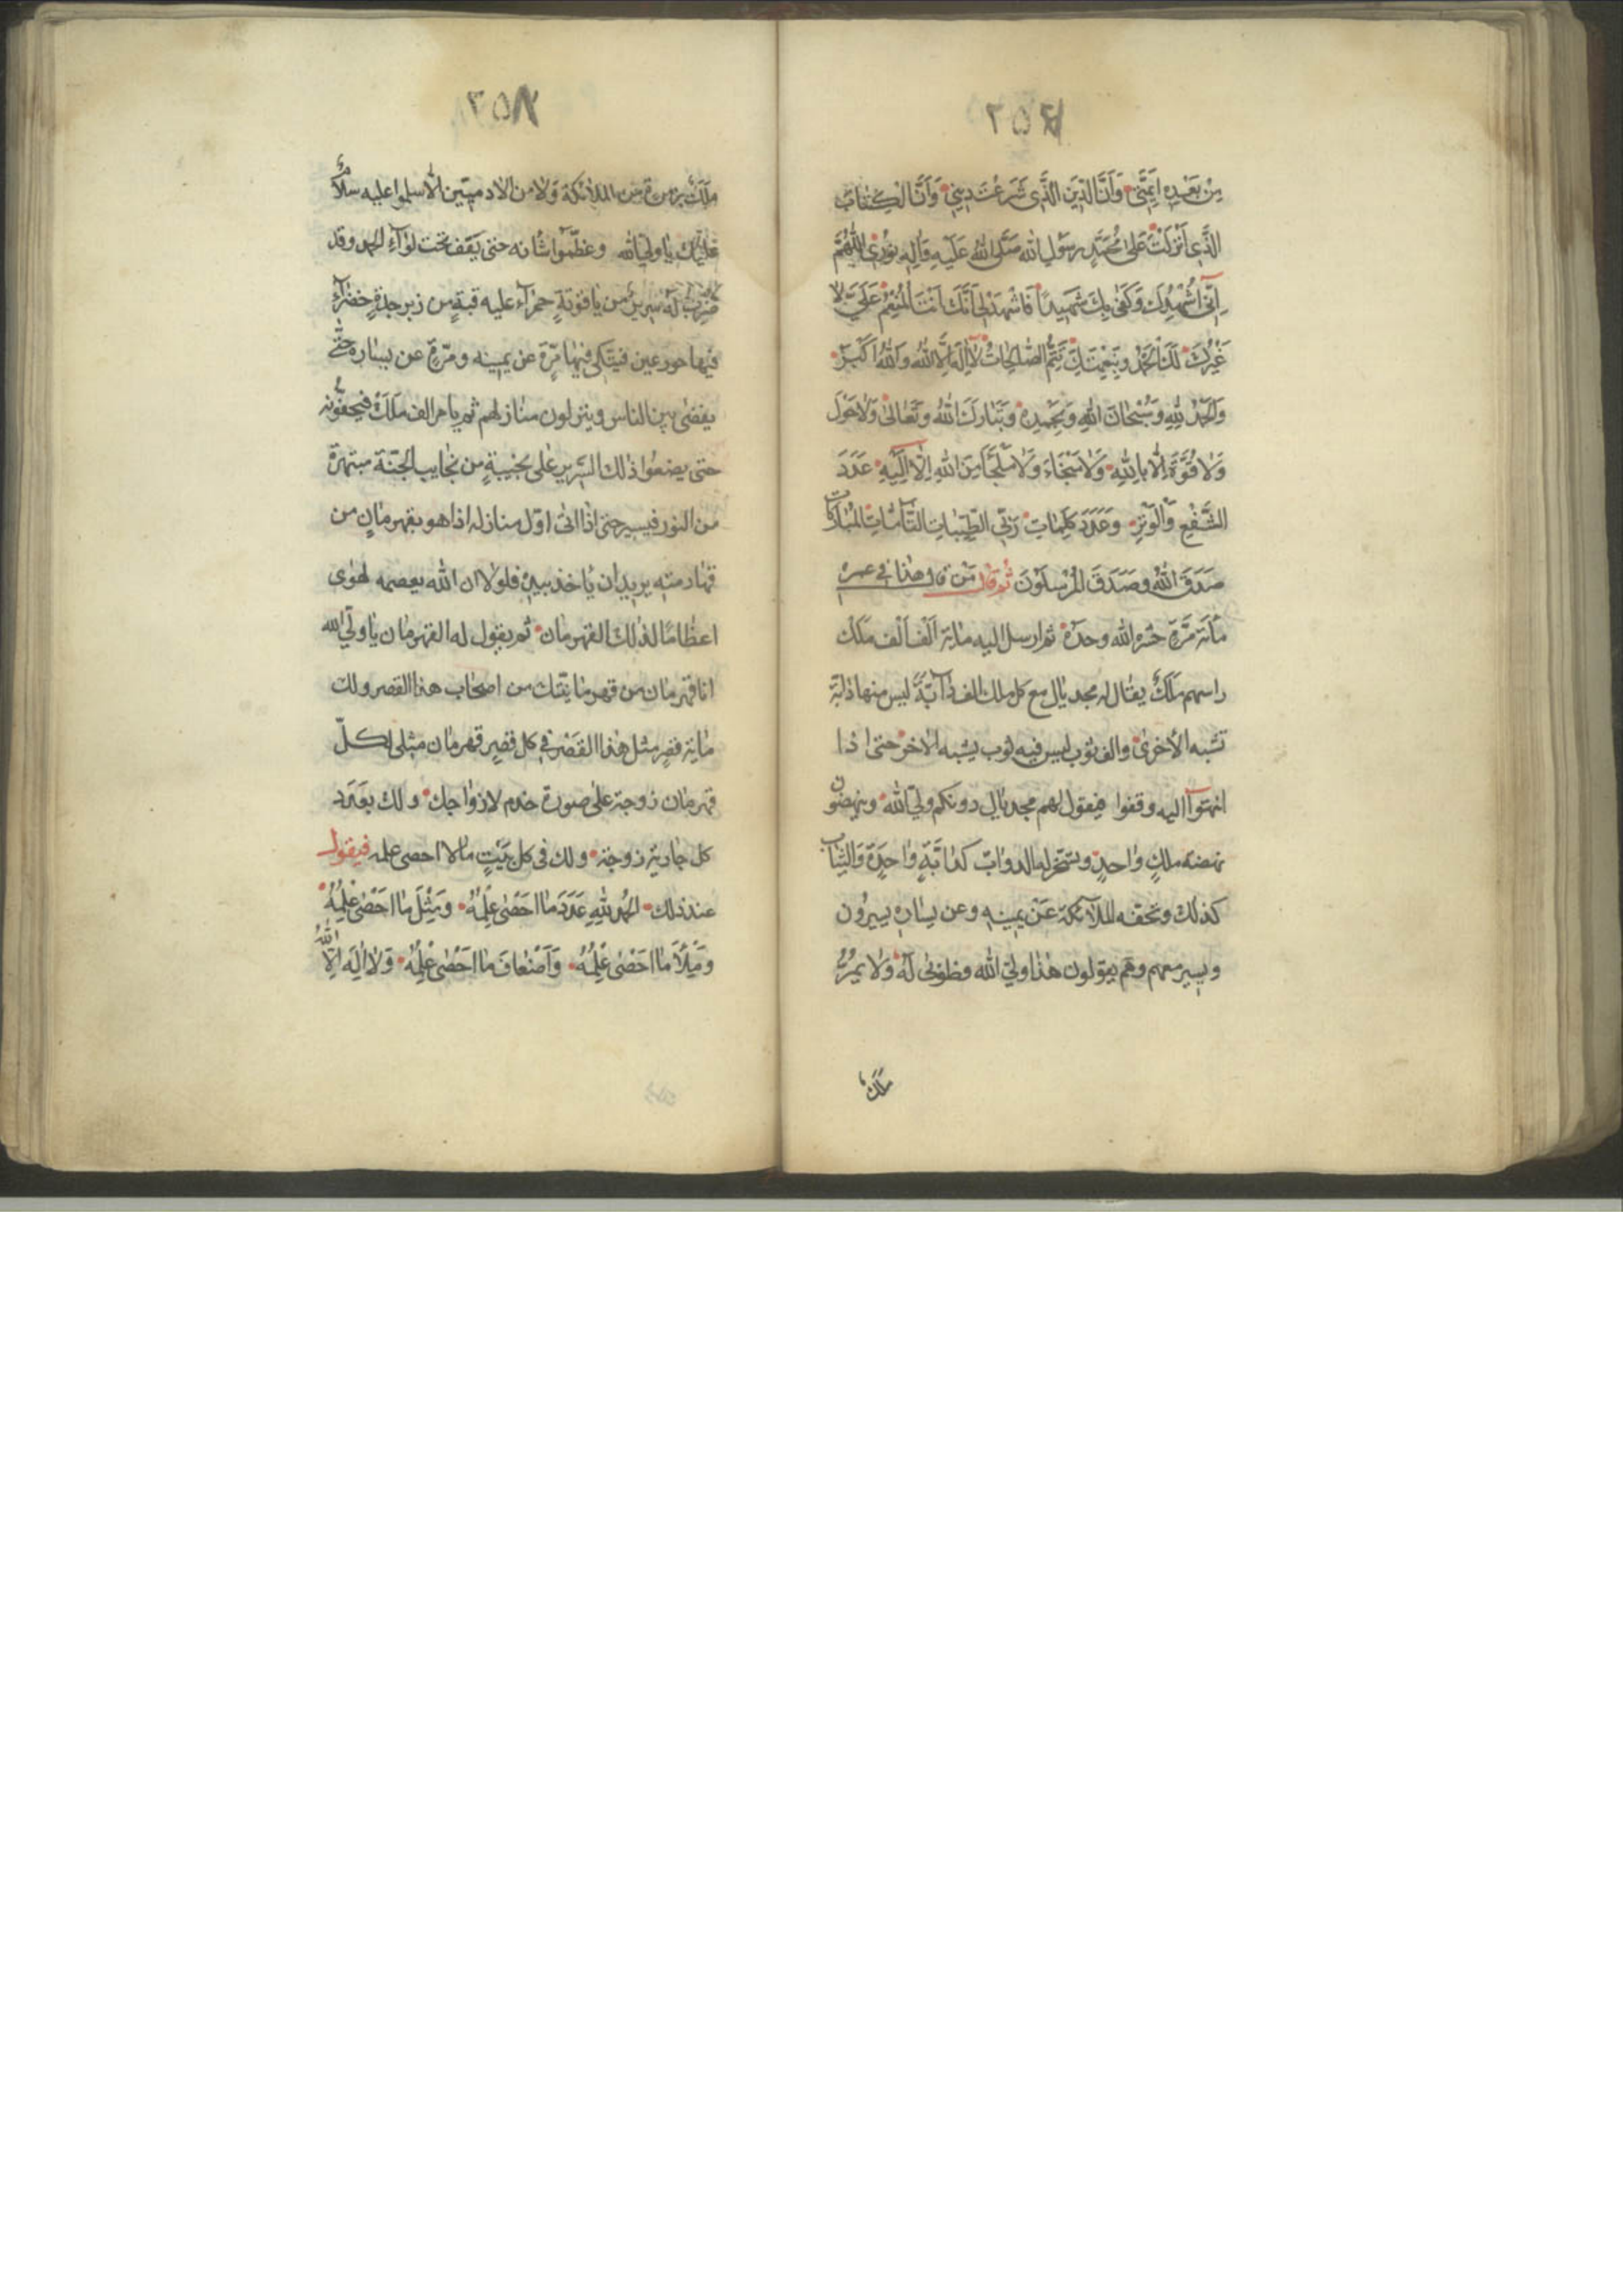 ٣٥٧
مِنْ بَعْدِهِ اَئِمَّتى وَاَنَّ الدّينَ الَّذى شَرَعْتَ دينى وَاَنَّ الْكِتابَ
الَّذى اَنْزَلْتَ عَلى مُحَمَّدٍ رَسُولِ اللهِ صَلَّى اللهُ عَلَيْهِ وَآلِهِ نُورى اَللّهُمَّ
اِنّى اُشْهِدُكَ وَكَفى بِكَ شَهيداً فَاشْهَدْ لى اَنَّكَ اَنْتَ الْمُنْعِمُ عَلَىَّ لا
غَيْرُكَ لَكَ الْحَمْدُ وَبِنِعْمَتِكَ تَتِمُّ الصّالِحاتُ لا اِلهَ اِلَّا اللهُ وَاللهُ اَكْبَرُ
وَالْحَمْدُ لِلّهِ وَسُبْحانَ اللهِ وَبِحَمْدِهِ وَتَبارَكَ اللهُ وَتَعالى وَلا حَوْلَ
وَلا قُوَّةَ اِلّا بِاللهِ وَلا مَنْجَاءَ وَلا مَلْجَأَ مِنَ اللهِ اِلّا اِلَيْهِ عَدَدَ
الشَّفْعِ وَالْوَتْرِ وَعَدَدَ كَلِماتِ رَبِّى الطَّيِّباتِ التّامّاتِ الْمُبارَكاتِ
صَدَقَ اللهُ وَصَدَقَ الْمُرْسَلُونَ ثم قال مَن قال هذا فى عمره
مائة مَرّة حشره الله وحده ثم ارسل اليه مائة الف الف ملك
راسهم مَلَكٌ يقال له مجديال مع كل ملك الف دآبّة ليس منها دابّة
تشبه الاخرى والف ثوب ليس فيه ثوب يشبه الاخر حتى اذا
انتهوا اليه وقفوا فيقول لهم مجديال دونكم ولىّ الله وينهضون
نهضة ملكٍ واحدٍ ويسخر له الدوابّ كدابّةٍ واحدةٍ والثياب
كذلك وتحفه الملآئكة عن يمينه وعن يساره يسيرون
ويسير معهم وهم يقولون هذا ولىّ الله فطوبى له ولا يمرّ
ملك
٣٥٨
ملَك بزمرة من الملائكة ولا من الادميّين الّا سلموا عليه سلام
عليك يا ولىّ الله وعظّموا شانه حتى يقف تحت لوآء الحمد وقد
ضرب له سرير من ياقوتةٍ حمرآء عليه قبةٍ من زبرجدةٍ خضرآء
فيها حور عين فيتكى فيها مرّة عن يمينه ومرّة عن يساره حتّى
يقضى بين الناس وينزلون منازلهم ثم يامر الف ملك فيحفّونه
حتى يضعوا ذلك السّرير على نجيبةٍ من نجايب الجنّة مبتهرة
من النور فيسير حتى اذا اتى اوّل منازله اذا هو بقهرمانٍ من
قهارمته يريد ان ياخذ بيده فلولا ان الله يعصمه لهوى
اعظامًا لذلك القهرمان ثم يقول له القهرمان يا ولىّ الله
انا قهرمان من قهرمانيّتك من اصحاب هذا القصر ولك
مائة قصر مثل هذا القصر فى كل قصرٍ قهرمان مثلى لكلّ
قهرمان زوجة على صورة خدم لازواجك ولك بعدد
كل جارية زوجة ولك فى كل بيتٍ ما لا احصى علمه فيقول
عند ذلك الحمد للهِ عَدَدَ ما احصى عِلْمُهُ وَمِثْلَ ما احصى عِلْمُهُ
وَمِلْأَ ما احصى عِلْمُهُ وَاَضْعافَ ما احصى عِلْمُهُ وَلا اِلهَ اِلَّا اللهُ